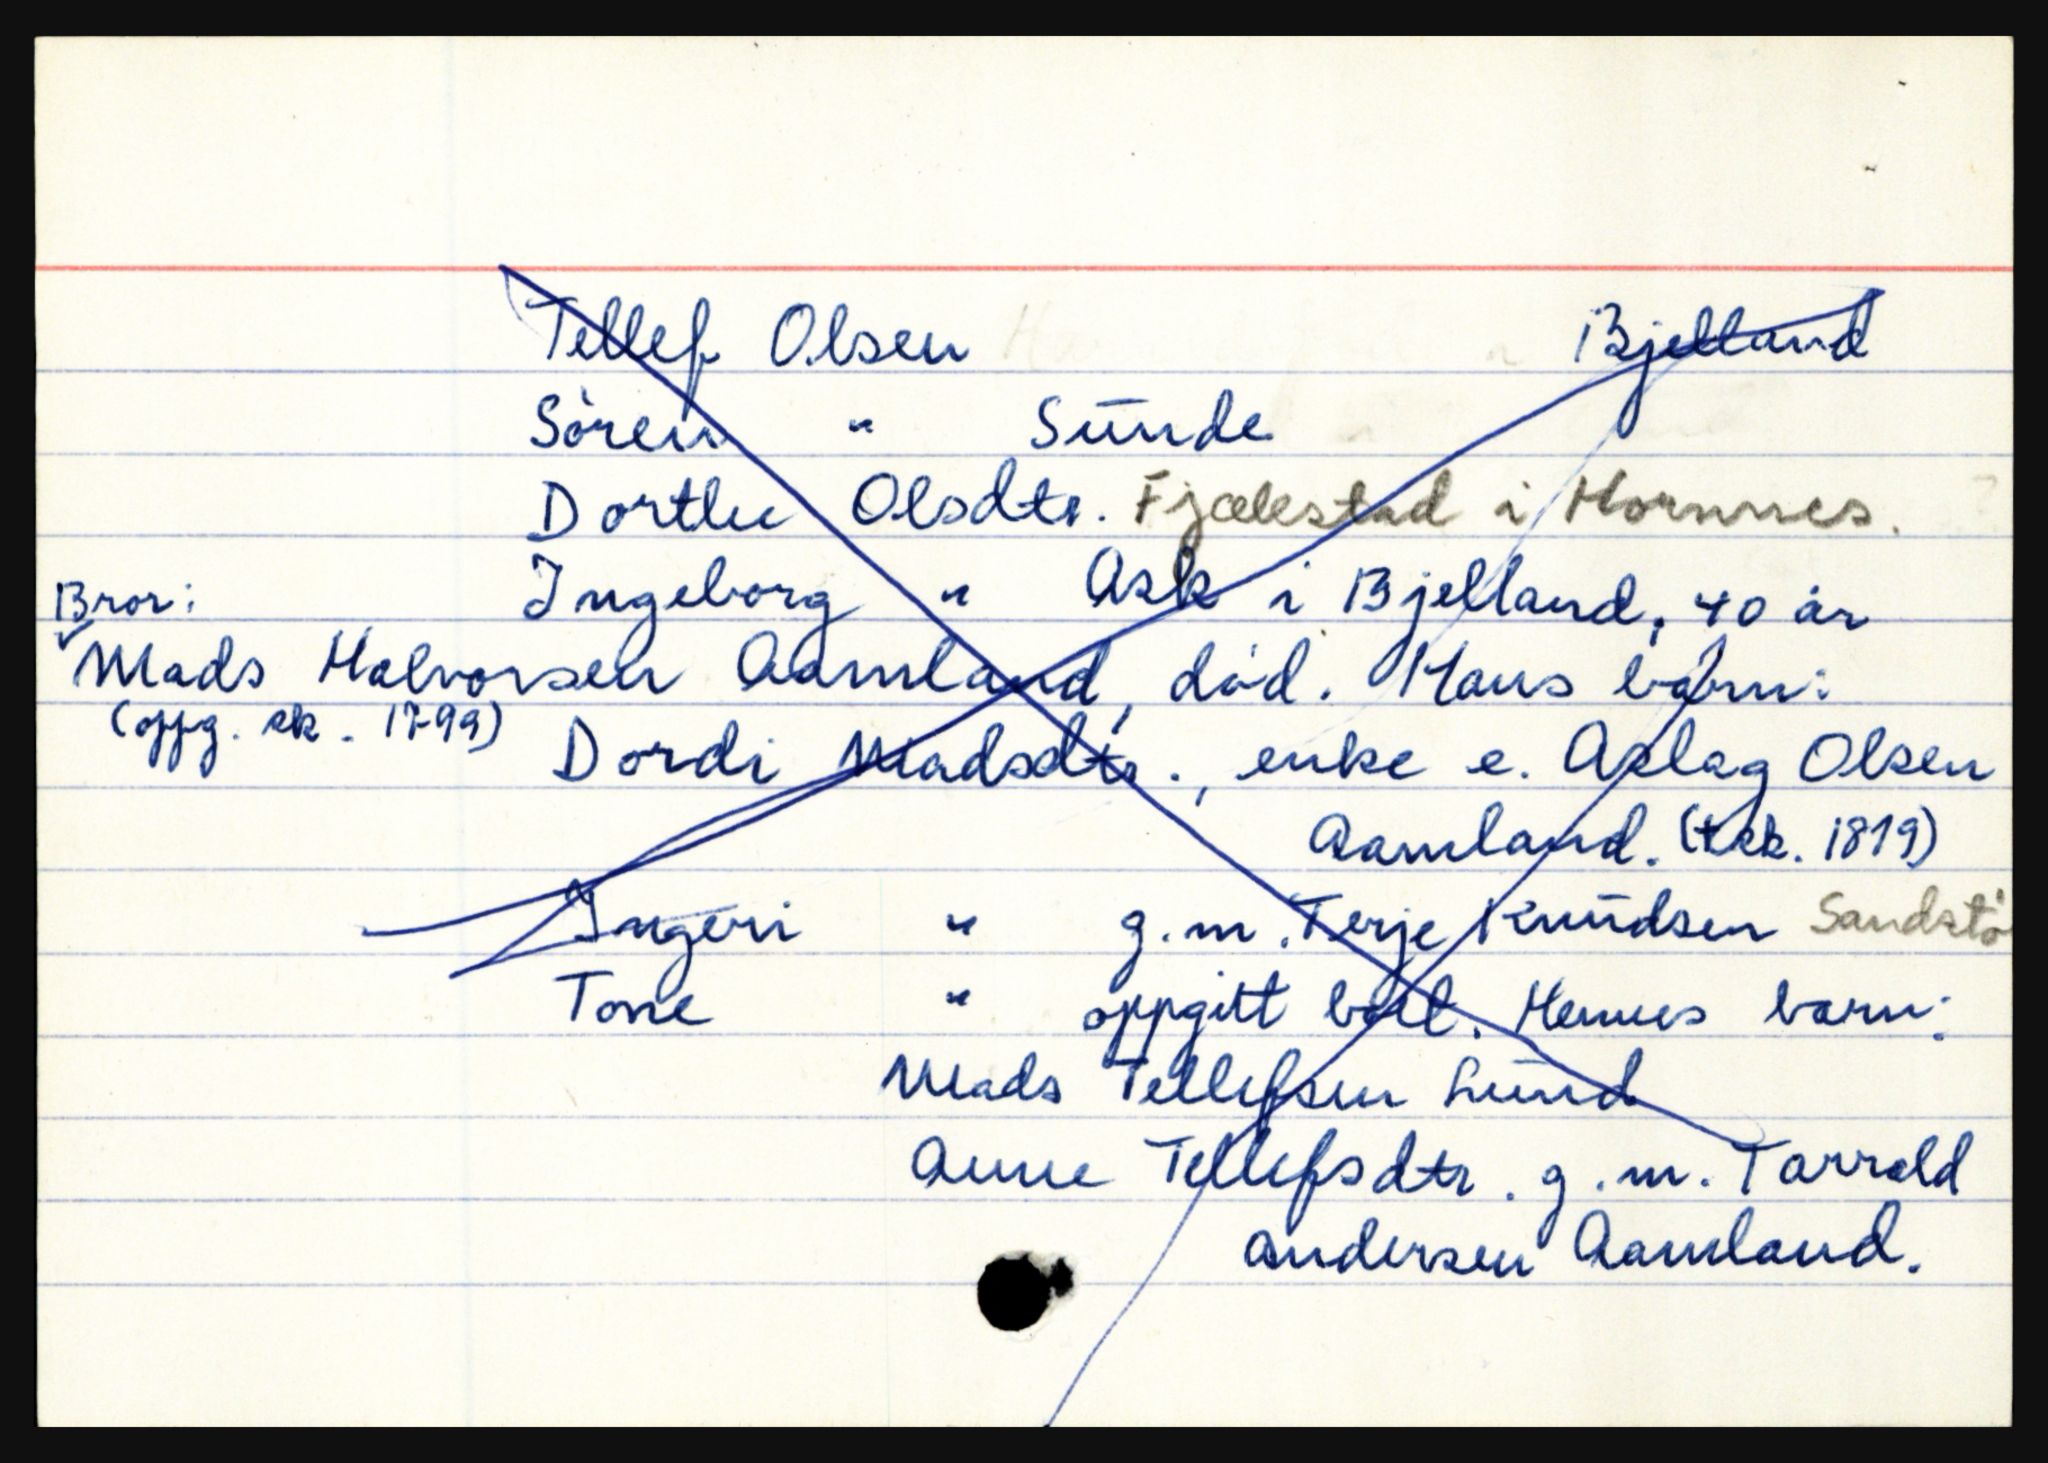 Tellef Olsen Bjelland
Sören " Sunde
Dorthe Olsdtr. Fjælestad i Hornnes.
Ingeborg " Ask i Bjelland, 40 år
Bror:
Mads Halvorsen Aamland, död. Hans börn:
(oppg. sk. 1799)
Dordi Madsdtr., enke e. Aslag Olsen
Aamland. (tsk. 1819)
Ingeri " g.m. Terje Knudsen Sandstö
Tone " oppgitt boet. Hennes barn:
Mads Tellefsen Lund
Anne Tellefsdtr. g.m. Tarrald
Andersen Aamland.